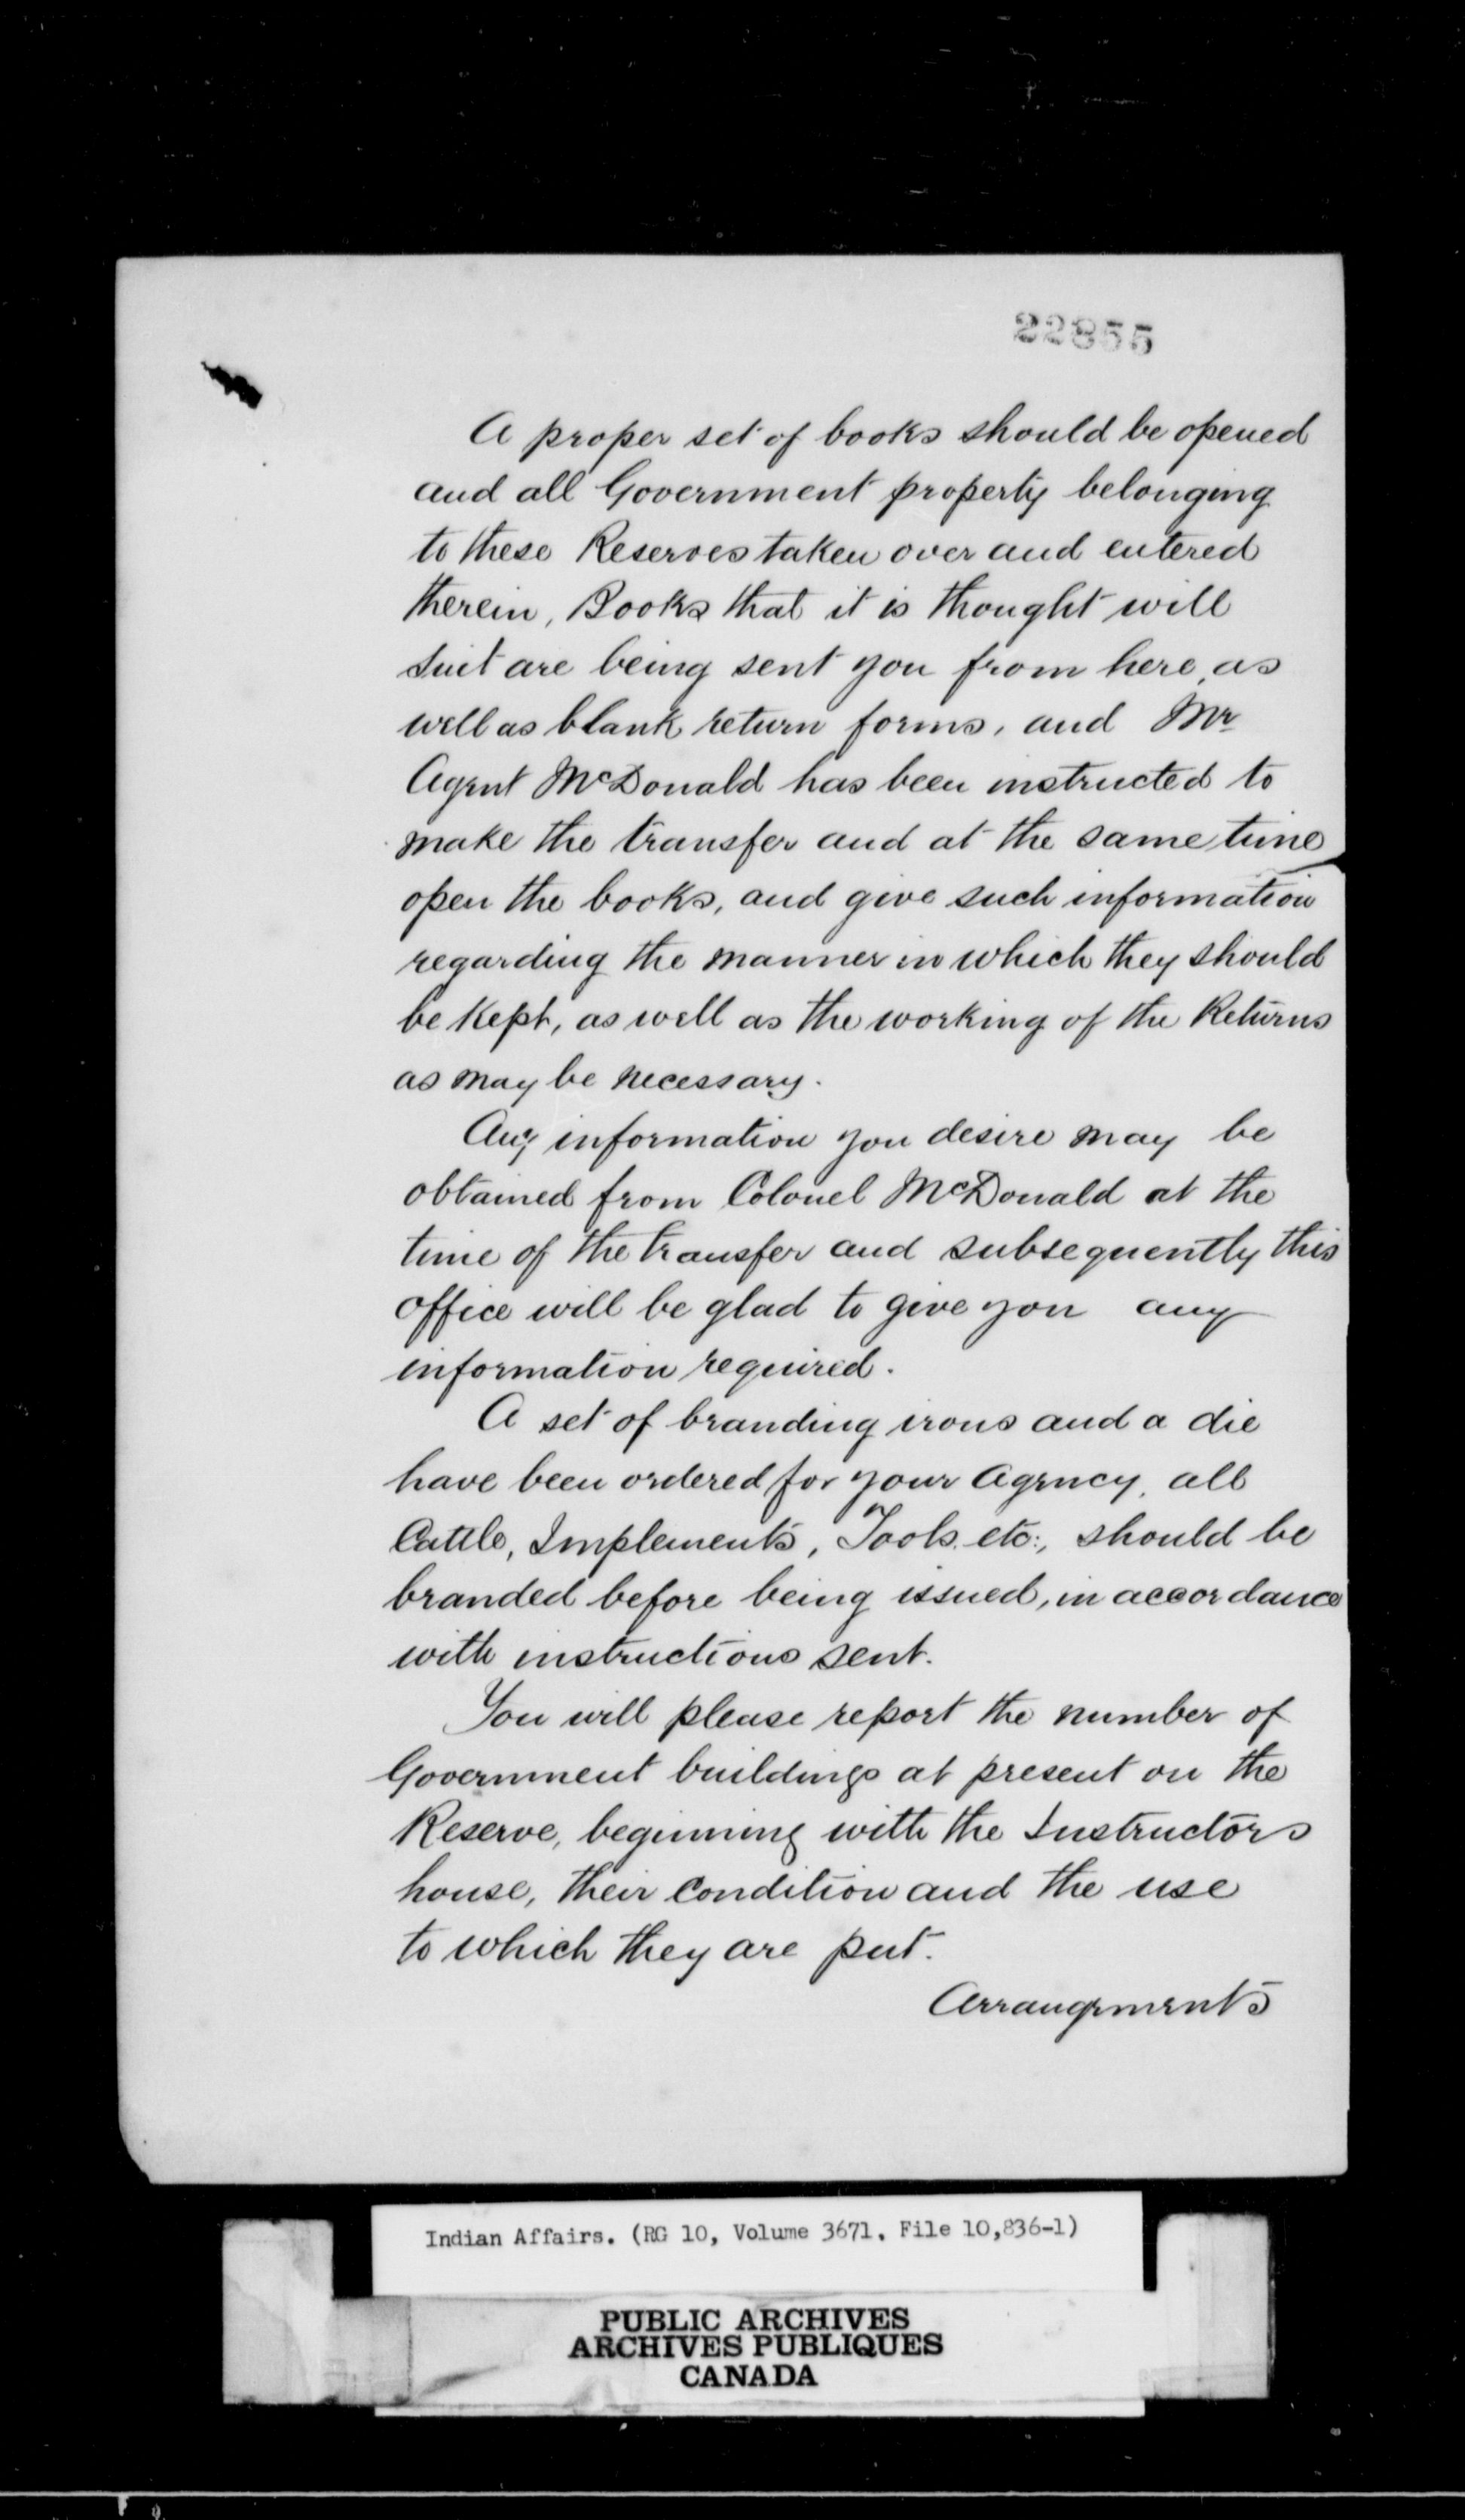 22855
A proper set of books should be opened
and all Government property belonging
to these Reserves taken over and entered
therein, Books that it is thought will
suit are being sent you from here, as
well as blank return forms, and Mr
Agent McDonald has been instructed to
make the transfer and at the same time
open the books, and give such information
regarding the manner in which they should
be kept, as well as the working of the Returns
as may be necessary.
Any information you desire may be
obtained from Colonel McDonald at the
time of the transfer and subsequently this
office will be glad to give you any
information required.
A set of branding irons and a die
have been ordered for your Agency, all
Cattle, Implements, Tools. etc:, should be
branded before being issued, in accordance
with instructions sent.
You will please report the number of
Government buildings at present on the
Reserve, beginning with the Instructors
house, their condition and the use
to which they are put.
Arrangements
Indian Affairs. (RG 10, Volume 3671, File 10,836-1)
PUBLIC ARCHIVES
ARCHIVES PUBLIQUES
CANADA